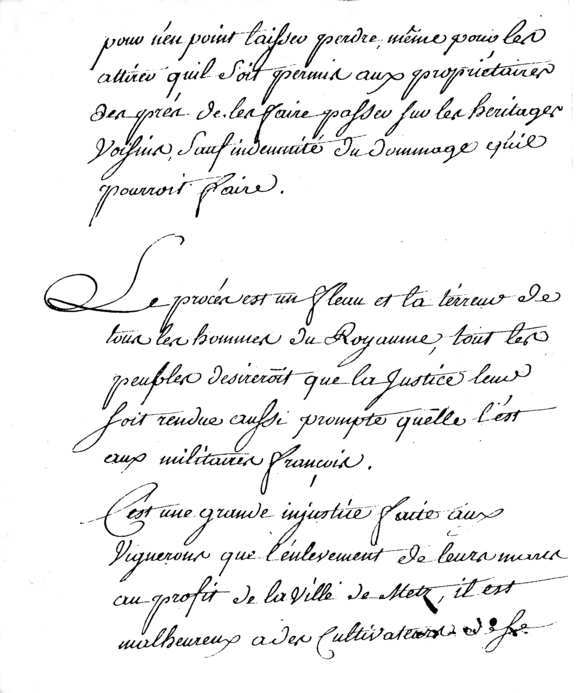 pour n'en point laisser perdre, même pour les
attirer quil soit permis aux propriétaires
des prés de les faire passer sur les heritages
Voisins, Sauf indemnité du dommage qu'il
pourroit faire.
Le procés est un fleau et la térreur de
tous les hommes du Royaume, tout les
peuples desireroit que la Justice leur
soit rendue aussi prompte quêlle l'ést
aux militaires françois.
C'ést une grande injustice faite aux
Vignerons que l'énlevement de leurs marcs
au profit de la Ville de Metz, il est
malheureux a des Cultivateurs de se